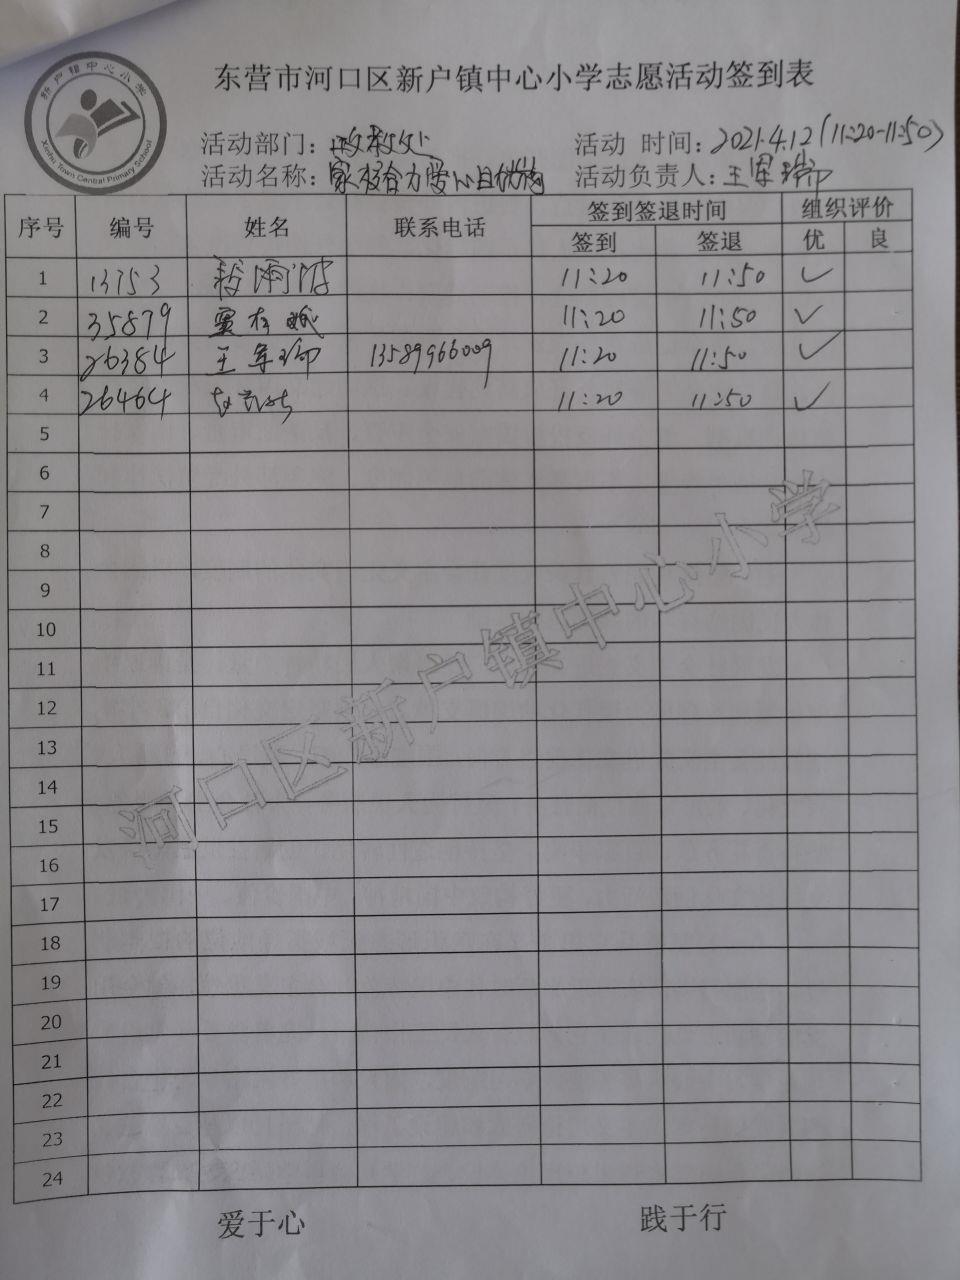 新户镇中心小学
Xinhu Town Central Primary School
东营市河口区新户镇中心小学志愿活动签到表
活动部门：政教处 活动 时间：2021.4.12（11:20-11:50）
活动名称：家校合力 活动负责人：王军瑞
序号 编号 姓名 联系电话 签到签退时间 组织评价
签到 签退 优 良
1 13753 11:20 11:50 ✓
2 35879 11:20 11:50 ✓
3 26384 王军瑞 13589966009 11:20 11:50 ✓
4 26464 11:20 11:50 ✓
5
6
7
8
9
10
11
12
13
14
15
16
17
18
19
20
21
22
23
24
河口区新户镇中心小学
爱于心 践于行